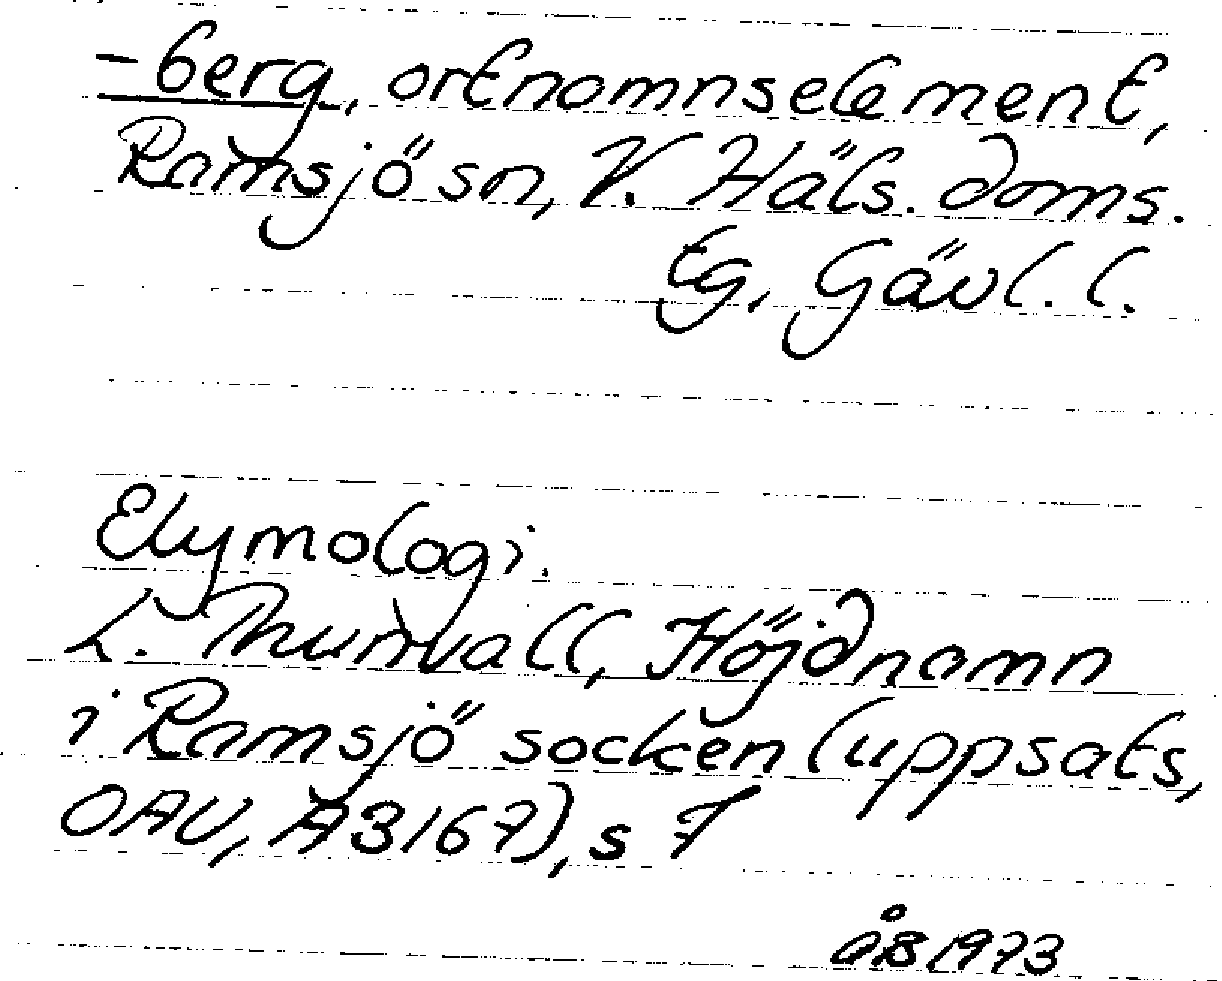 -berg, ortnamnselement,
Ramsjö sn, V. Häls. doms.
tg, Gävl. l.
Etymologi.
L. Thunvall, Höjdnamn
i Ramsjö socken (uppsats,
OAU, A3167), s 7
ÅB 1973